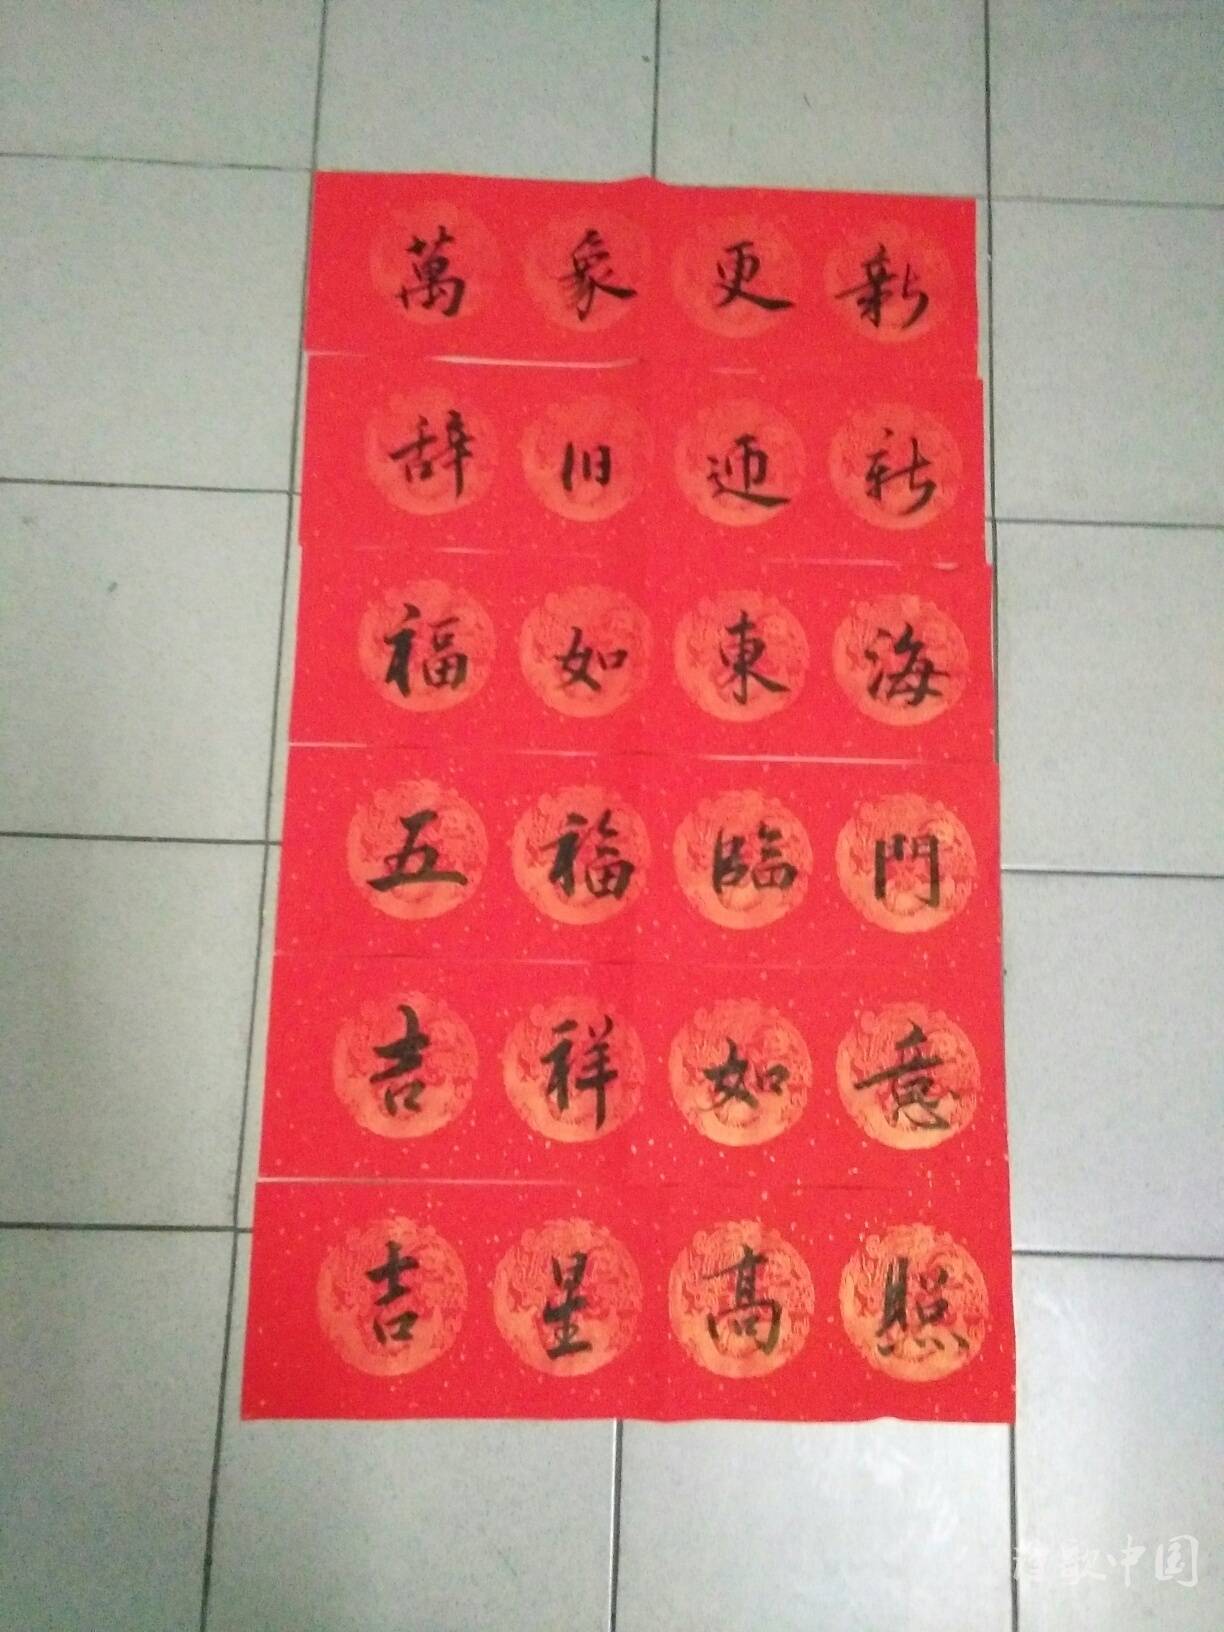 萬象更新
辞旧迎新
福如東海
五福臨門
吉祥如意
吉星高照
中国